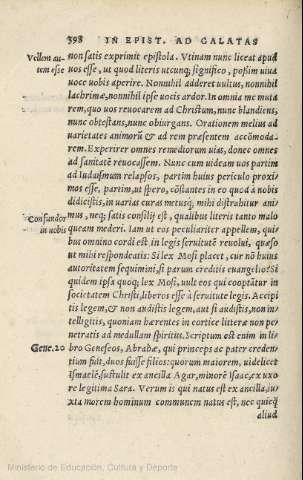 398 IN EPIST. AD GALATAS
Vellem au-
tem esse
non satis exprimit epistola. Vtinam nunc liceat apud
uos esse, ut quod literis utcunq; significo, possim uiua
uoce uobis aperire. Nonnihil adderet uultus, nonnihil
lachrimæ, nonnihil ipse uocis ardor. In omnia me muta
rem, quo uos reuocarem ad Christum, nunc blandiens,
nunc obtestans, nunc obiurgans. Orationem melius ad
uarietates animorū & ad rem præsentem accōmoda-
rem. Experirer omnes remediorum uias, donec omnes
ad sanitatē reuocassem. Nunc cum uideam uos partim
ad Iudaismum relapsos, partim huius periculo proxi
mos esse, partim, ut spero, cōstantes in eo quod à nobis
didicistis, in uarias curas metusq; mihi distrahitur ani
Confundor
in uobis
mus, neq; satis consilij est, qualibus literis tanto malo
queam mederi. Iam ut eos peculiariter appellem, qui-
bus omnino cordi est in legis seruitutē reuolui, quæso
ut mihi respondeatis: Si lex Mosi placet, cur nō huius
autoritatem sequimini, si parum creditis euangelio? Si
quidem ipsa quoq; lex Mosi, uult eos qui cooptātur in
societatem Christi, liberos esse à seruitute legis. Accipi
tis legem, & non auditis legem, aut si auditis, non in-
telligitis, quoniam hærentes in cortice litteræ non pe
netratis ad medullam spiritus. Scriptum est enim in li
Gene. 20
bro Geneseos, Abrahæ, qui princeps ac pater creden-
tium fuit, duos fuisse filios: quorum maiorem, uidelicet
Ismaelē, sustulit ex ancilla Agar, minorē Isaac, ex uxo
re legitima Sara. Verum is qui natus est ex ancilla, iu-
xta morem hominum communem natus est, nec quicq̃
aliud
Ministerio de Educación, Cultura y Deporte